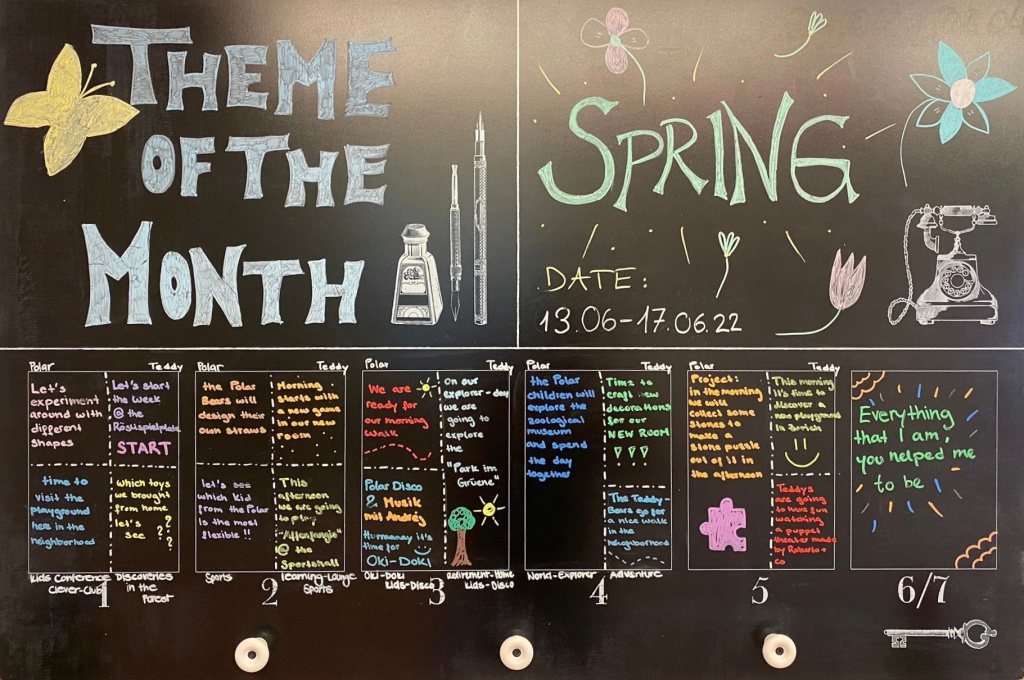 THEME
OF THE
MONTH
SPRING
DATE:
13.06-17.06.22
Polar
Let's
experiment
around with
different
shapes
Teddy
Let's start
the week
@ the
Röslispielplatz
START
time to
visit the
playground
here in the
neighborhood
which toys
we brought
from home
let's
see ? ? ?
Kids Conference
Clever-Club
Discoveries
in the
Forest
1
Polar
the Polar
Bears will
design their
own straws
Teddy
Morning
starts with
a new game
in our new
room
let's see
which kid
from the Polar
is the most
flexible !!
This
afternoon
we are going
to play
"Affenfangis"
@ the
Sportshall
Sports
learning-Lounge
Sports
2
Polar
We are
ready for
our morning
walk
Teddy
on our
explorer-day
we are
going to
explore
the
"Park im
Gruene"
Polar Disco
& Musik
mit Andrej
it's
time for
Oki-Doki
Oki-Doki
Kids-Disco
Retirement-Home
Kids-Disco
3
Polar
the Polar
children will
explore the
zoological
museum
and spend
the day
together
Teddy
Time to
craft new
decorations
for our
NEW ROOM
!!!
The Teddy-
Bears go for
a nice walk
in the
neighborhood
World-Explorer
Adventure
4
Polar
Project:
in the morning
we will
collect some
stones to
make a
stone puzzle
out of it in
the afternoon
Teddy
This morning
it's time to
discover a
new playground
in Zurich
Teddys
are going
to have fun
watching
a puppet
theater made
by Roberto +
co
5
Everything
that I am,
you helped me
to be
6/7